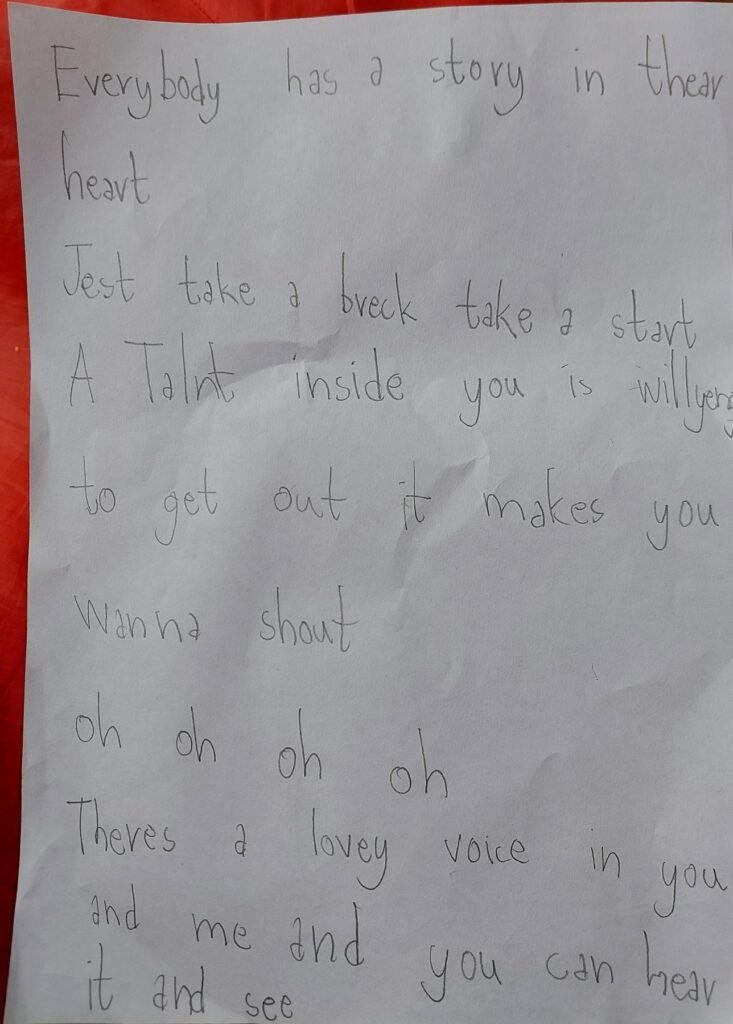 Everybody has a story in thear
heart
Jest take a breck take a start
A Talnt inside you is willyeng
to get out it makes you
wanna shout
oh oh oh oh
Theres a lovey voice in you
and me and you can hear
it and see